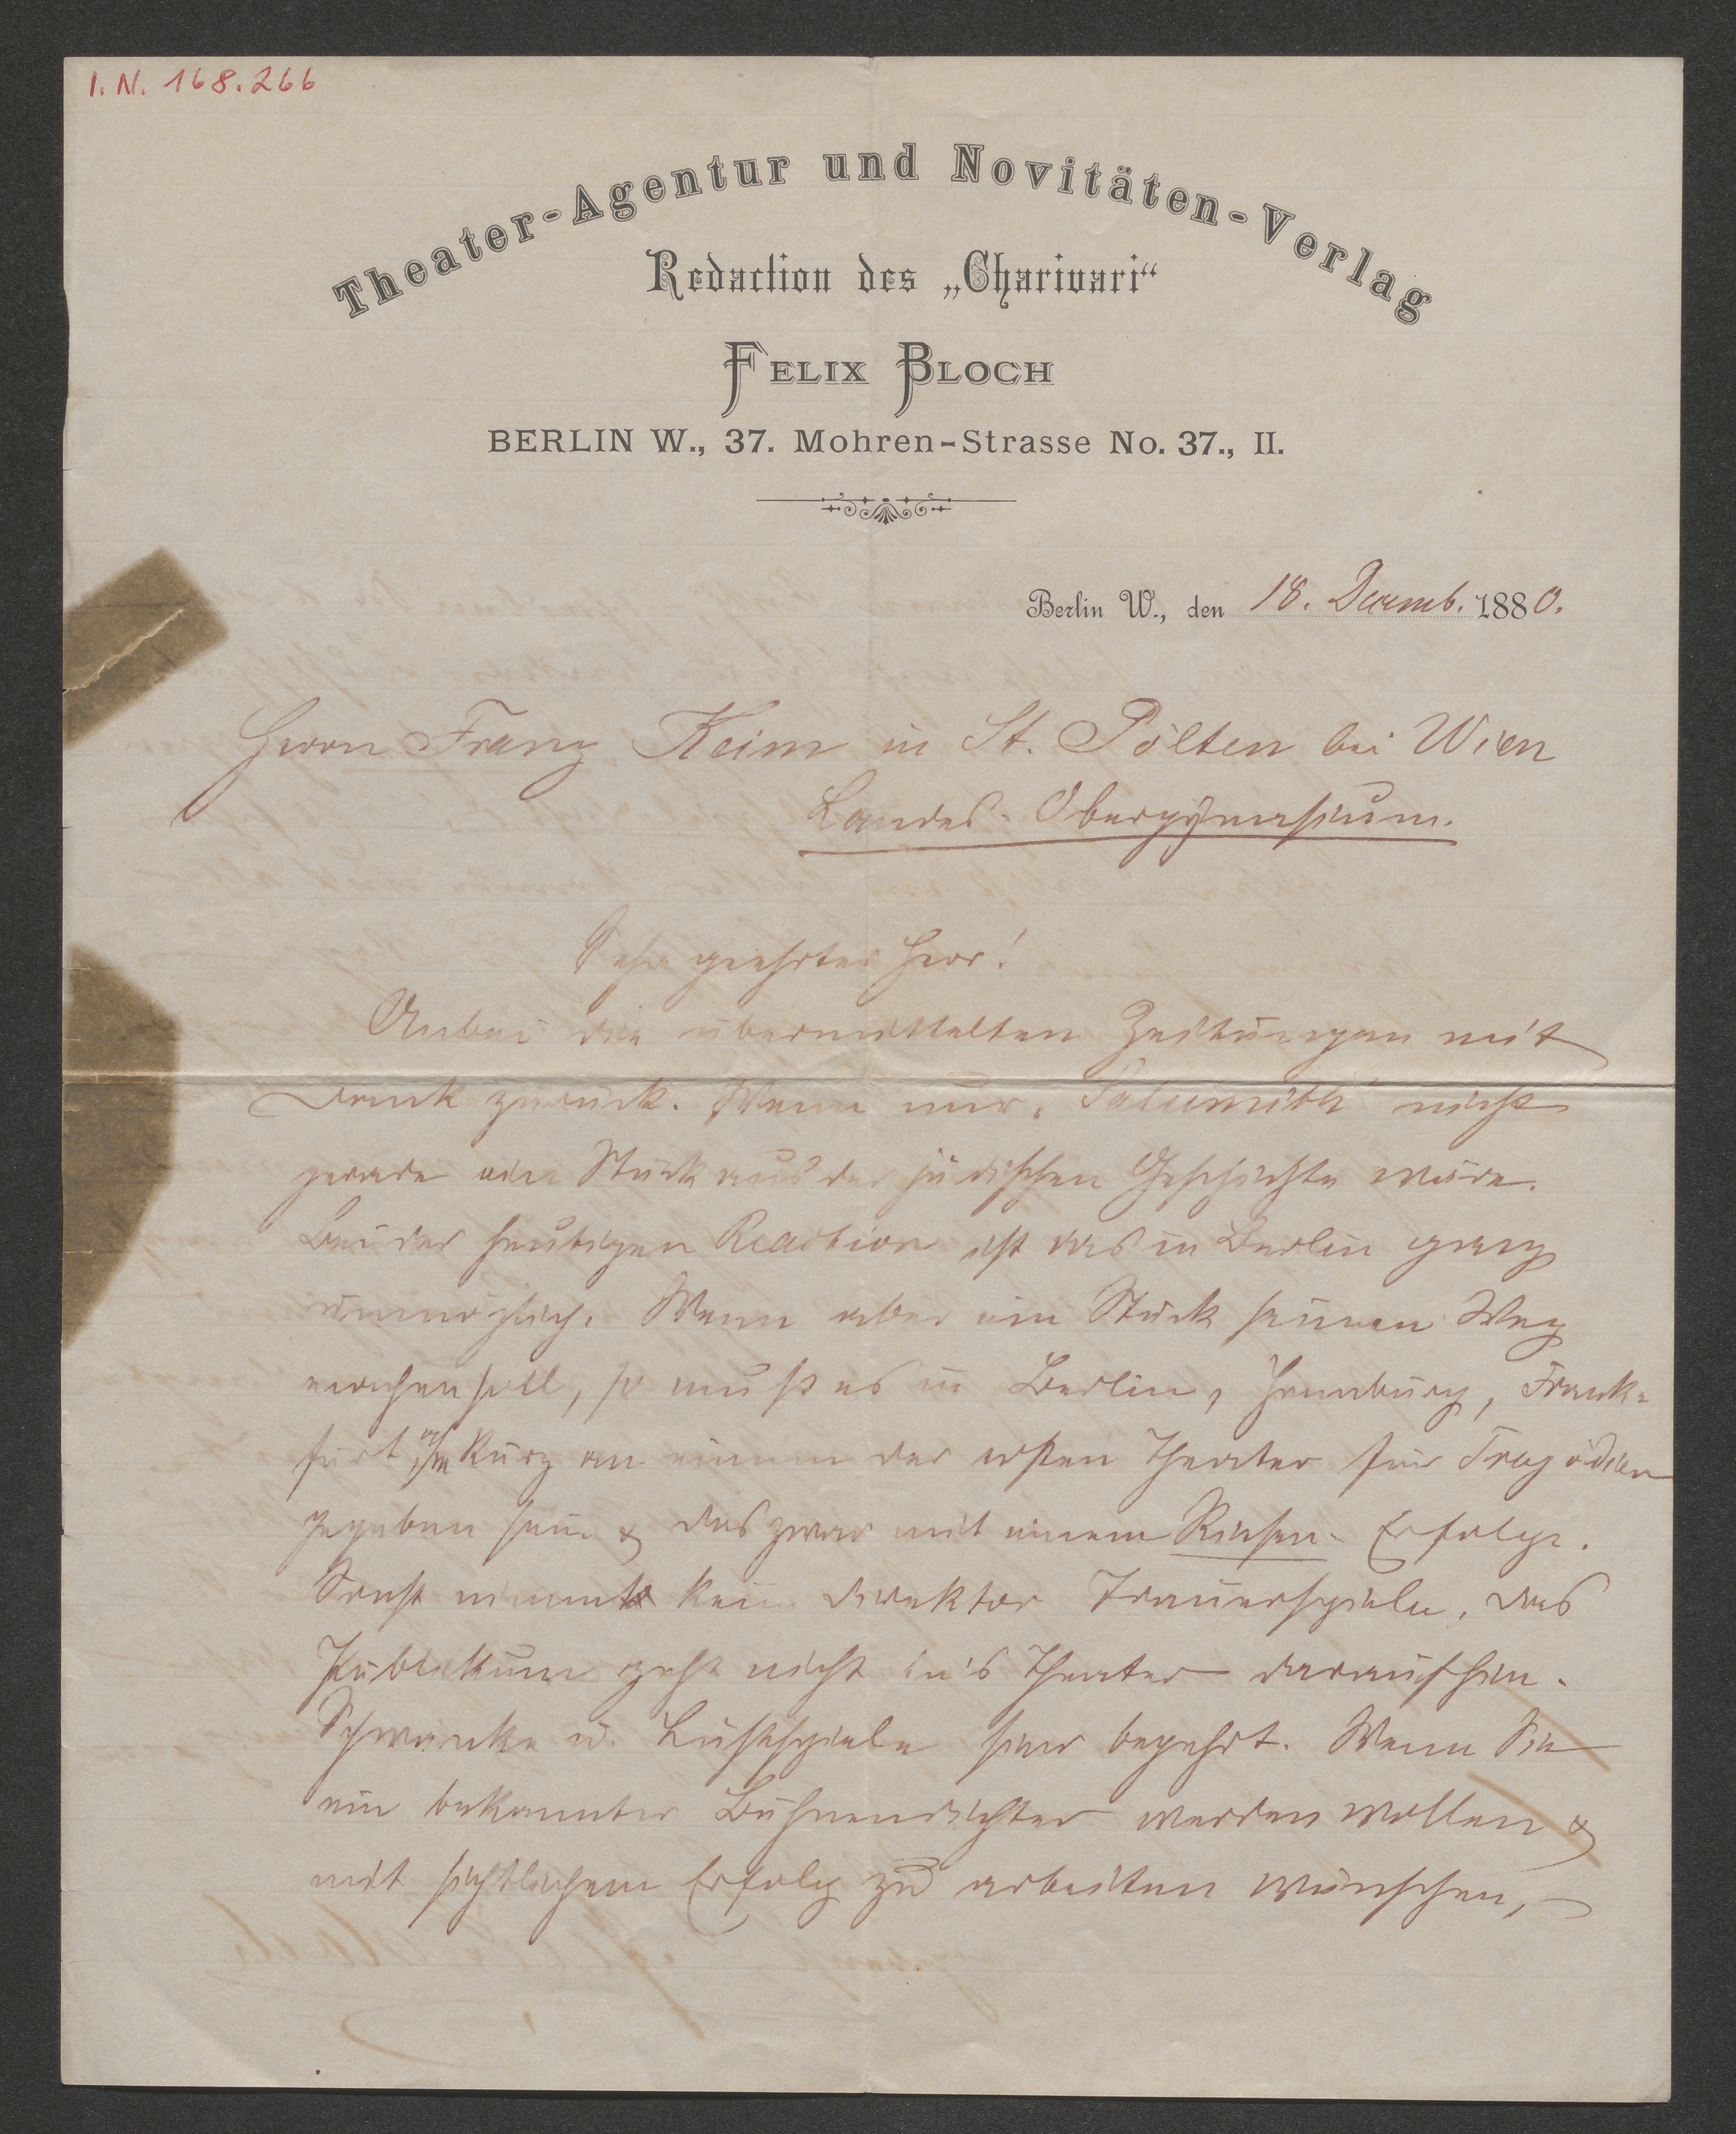 I. N. 168.266
Theater-Agentur und Novitäten-Verlag
Redaction des „Charivari“
FELIX BLOCH
BERLIN W., 37. Mohren-Strasse No. 37., II.
Berlin W., den 18. Decemb. 1880.
Herrn Franz Keim in St. Pölten bei Wien
Landes-Obergymnasium.
Sehr geehrter Herr!
Anbei die übermittelten Zeitungen mit
Dank zurück. Wenn nur „Sulamith“ nicht
gerade ein Stück aus der jüdischen Geschichte wäre.
Bei der heutigen Reaction ist das in Berlin ganz
unmöglich. Wenn aber ein Stück seinen Weg
machen soll, so muß es in Berlin, Hamburg, Frank-
furt a/m kurz an einem der ersten Theater für Tragödien
gegeben sein & das zwar mit einem Riesen-Erfolge.
Sonst nimmt kein Direktor Trauerspiele, das
Publikum geht nicht in's Theater daraufhin.
Schwänke u. Lustspiele sind begehrt. Wenn Sie
ein bekannter Bühnendichter werden wollen &
mit sichtlichem Erfolg zu arbeiten wünschen,